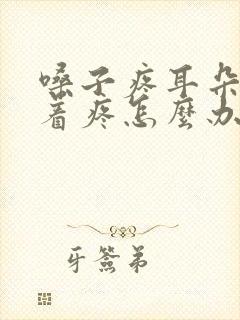 嗓子疼耳朵
着疼怎麼办
牙签弟